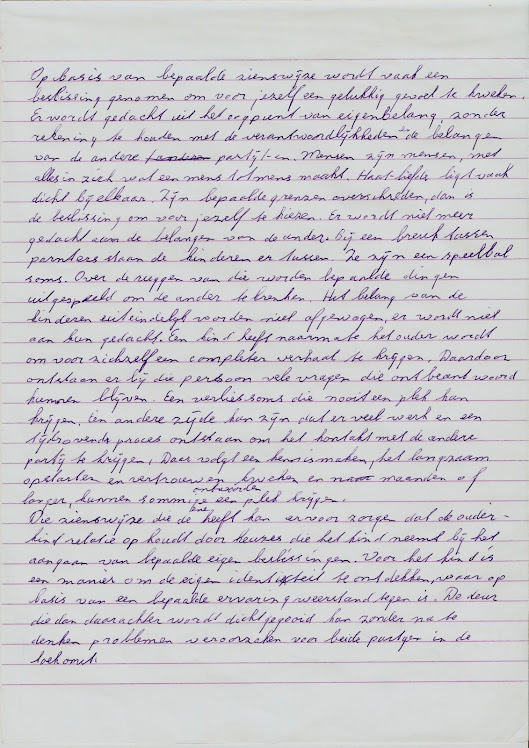 Op basis van bepaalde zienswijze wordt vaak een
beslissing genomen om voor jezelf een gelukkig gevoel te kweken.
Er wordt gedacht uit het oogpunt van eigenbelang, zonder
rekening te houden met de verantwoordlijkheden + de belangen
van de andere partij(-en. Mensen zijn mensen, met
alles in zich wat een mens tot mens maakt. Haat-liefde ligt vaak
dicht bij elkaar. Zijn bepaalde grenzen overschreden, dan is
de beslissing om voor jezelf te kiezen. Er wordt niet meer
gedacht aan de belangen van de ander. Bij een breuk tussen
parnters staan de kinderen er tussen. Ze zijn een speelbal
soms. Over de ruggen van die worden bepaalde dingen
uitgespeeld om de ander te krenken. Het belang van de
kinderen uiteindelijk worden niet afgewogen, er wordt niet
aan hun gedacht. Een kind heeft naarmate het ouder wordt
om voor zichzelf een completer verhaal te krijgen. Daardoor
ontstaan er bij die persoon vele vragen die onbeantwoord
kunnen blijven. Een verlies soms die nooit een plek kan
krijgen. Een andere zijde kan zijn dat er veel werk en een
tijdrovends proces ontstaan om het kontakt met de andere
partij te krijgen. Daar volgt een kennismaken, het langzaam
opstarten en vertrouwen kweken en maanden of
langer, kunnen sommige antwoorden een plek krijgen.
Die zienswijze die de ene heeft kan ervoor zorgen dat de ouder-
kind relatie op houdt door keuzes die het kind neemt bij het
aangaan van bepaalde eigen beslissingen. Voor het kind is
een manier om de eigen identiteit te ontdekken, waar op
basis van een bepaalde ervaring weerstand tegen is. De deur
die dan daarachter wordt dichtgegooid kan zonder na te
denken problemen veroorzaken voor beide partijen in de
toekomst.